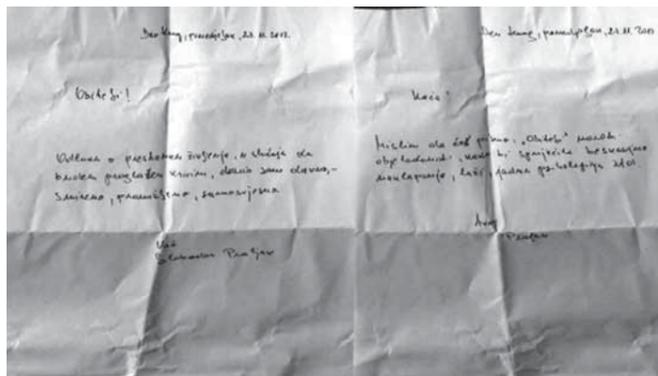 Den Haag, ponedjeljak,
Obitelji!
Odluku o prestanku življenja, u slučaju da
budem proglašen krivim, donio sam davno, -
smireno, promišljeno, samosvjesno
Vaš
Slobodan Praljak
Den Haag, ponedjeljak,
Kaća!
Mislim da ćeš pismo, „Obitelji“ morati
objelodaniti, kako bi spriječila beskrajna
naklapanja, laži, jadna
Praljak